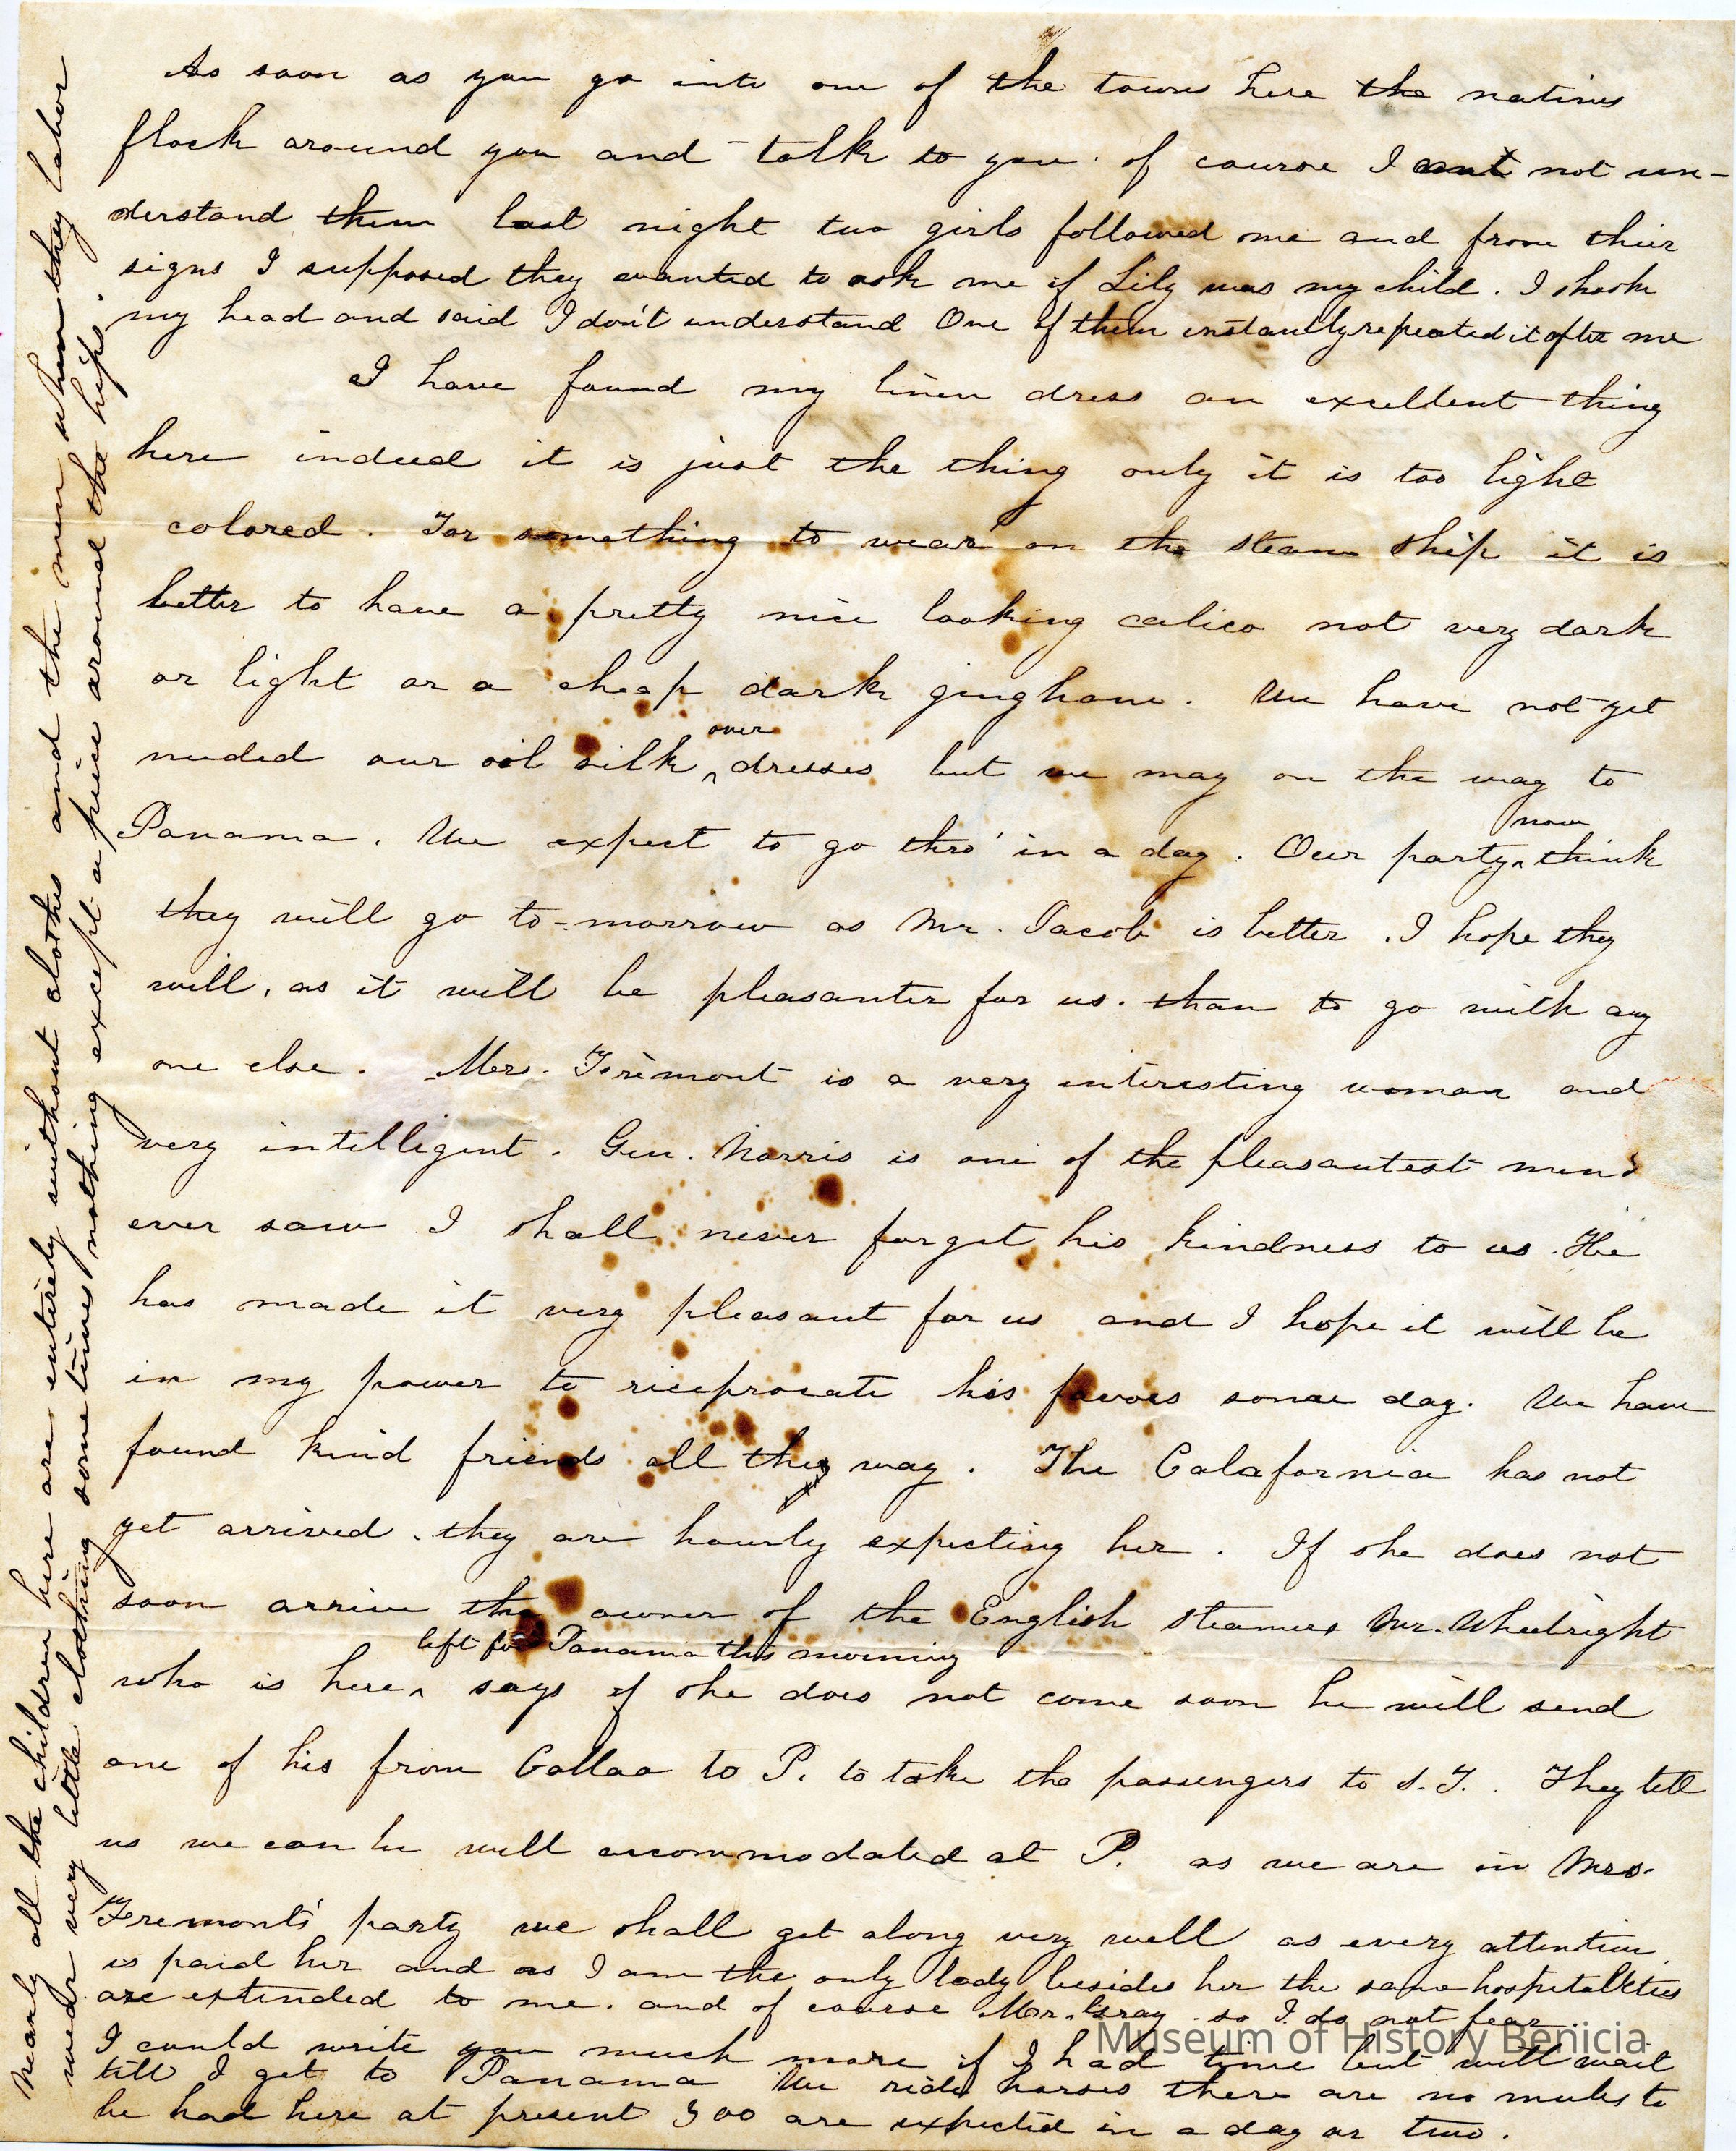 As soon as you go into one of the towns here the natives
flock around you and talk to you. of course I not un-
derstand them last night two girls followed me and from their
signs I supposed they wanted to ask me if Lily was my child. I shook
my head and said I don't understand One of them instantly repeated it after me
I have found my linen dress an excellent thing
here indeed it is just the thing only it is too light
colored. For something to wear on the steam ship it is
better to have a pretty nice looking calico not very dark
or light or a cheap dark gingham. We have not yet
over
needed our oil silk ^ dresses but we may on the way to
now
Panama. We expect to go thro' in a day. Our party ^ think
they will go to-morrow as Mr. Jacob is better. I hope they
will, as it will be pleasanter for us. than to go with any
one else. Mrs. Fremont is a very interesting woman and
very intelligent. Gen. Norris is one of the pleasantest men I
ever saw I shall never forget his kindness to us. He
has made it very pleasant for us and I hope it will be
in my power to reciprocate his favors some day. We have
found kind friends all the way. The Calafornia has not
yet arrived. they are hourly expecting her. If she does not
soon arrive the owner of the English steamers Mr. Wheelright
left for Panama this morning
who is here ^ says if she does not come soon he will send
one of his from Callao to P. to take the passengers to S.F. They tell
us we can be well accommodated at P. as we are in Mrs.
Fremont's party we shall get along very well as every attention
is paid her and as I am the only lady besides her the same hospitalities
are extended to me. and of course Mr. Gray. so I do not fear.
I could write you much more if I had time but will wait
till I get to Panama We ride horses there are no mules to
be had here at present 300 are expected in a day or two.
Nearly all the children here are entirely without clothes and the men when they labor
wear very little clothing some times nothing except a piece around the hips.
Museum of History Benicia